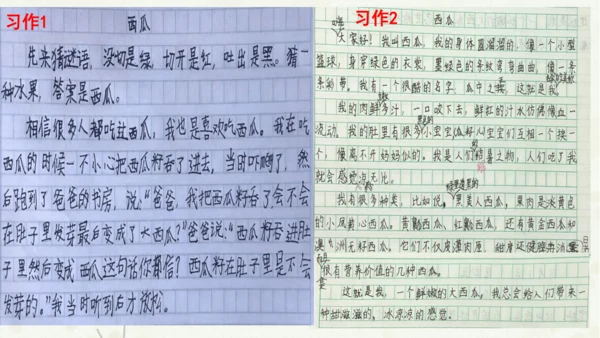 习作1
西瓜
先来猜谜语，没切是绿，切开是红，吐出是黑。猜一
种水果，答案是西瓜。
相信很多人都吃过西瓜，我也是喜欢吃西瓜。我在吃
西瓜的时候一不小心把西瓜籽吞了进去，当时吓
然
后跑到了爸爸的书房，说：“爸爸，我把西瓜籽吞了会不会
在肚子里发芽最后变成了大西瓜？”爸爸说：“西瓜籽吞进肚
子里然后变成西瓜这句话你都信？西瓜籽在肚子里是不会
发芽的。”我当时听到后才放松。
习作2
西瓜
大家好！我叫西瓜，我的身体圆溜溜的，像一个小型
篮球，身穿绿色的衣裳，墨绿色的条纹弯弯曲曲，像一条
条彩带。我有一个很酷的名字
瓜中之
这就是我
我的肉鲜多汁，一口咬下去，鲜红的汁水仿佛像血一
流动，我的肚里有很多小宝宝
宝宝们互相一个挨一
个，像离不开妈妈似的。我是人们
暑之物，人们吃了我
就会感觉
无比。
我有很多种类，比如说，黑美人西瓜，果肉是淡黄色
的小凤
心西瓜。黄瓤西瓜、红瓤西瓜，还有黄金西瓜和
澳洲无籽西瓜。它们不仅皮薄肉厚，
很有营养价值的几种西瓜。
这就是我，一个鲜嫩的大西瓜，我总会给人们带来一
种甜滋滋的，冰凉凉的感觉。